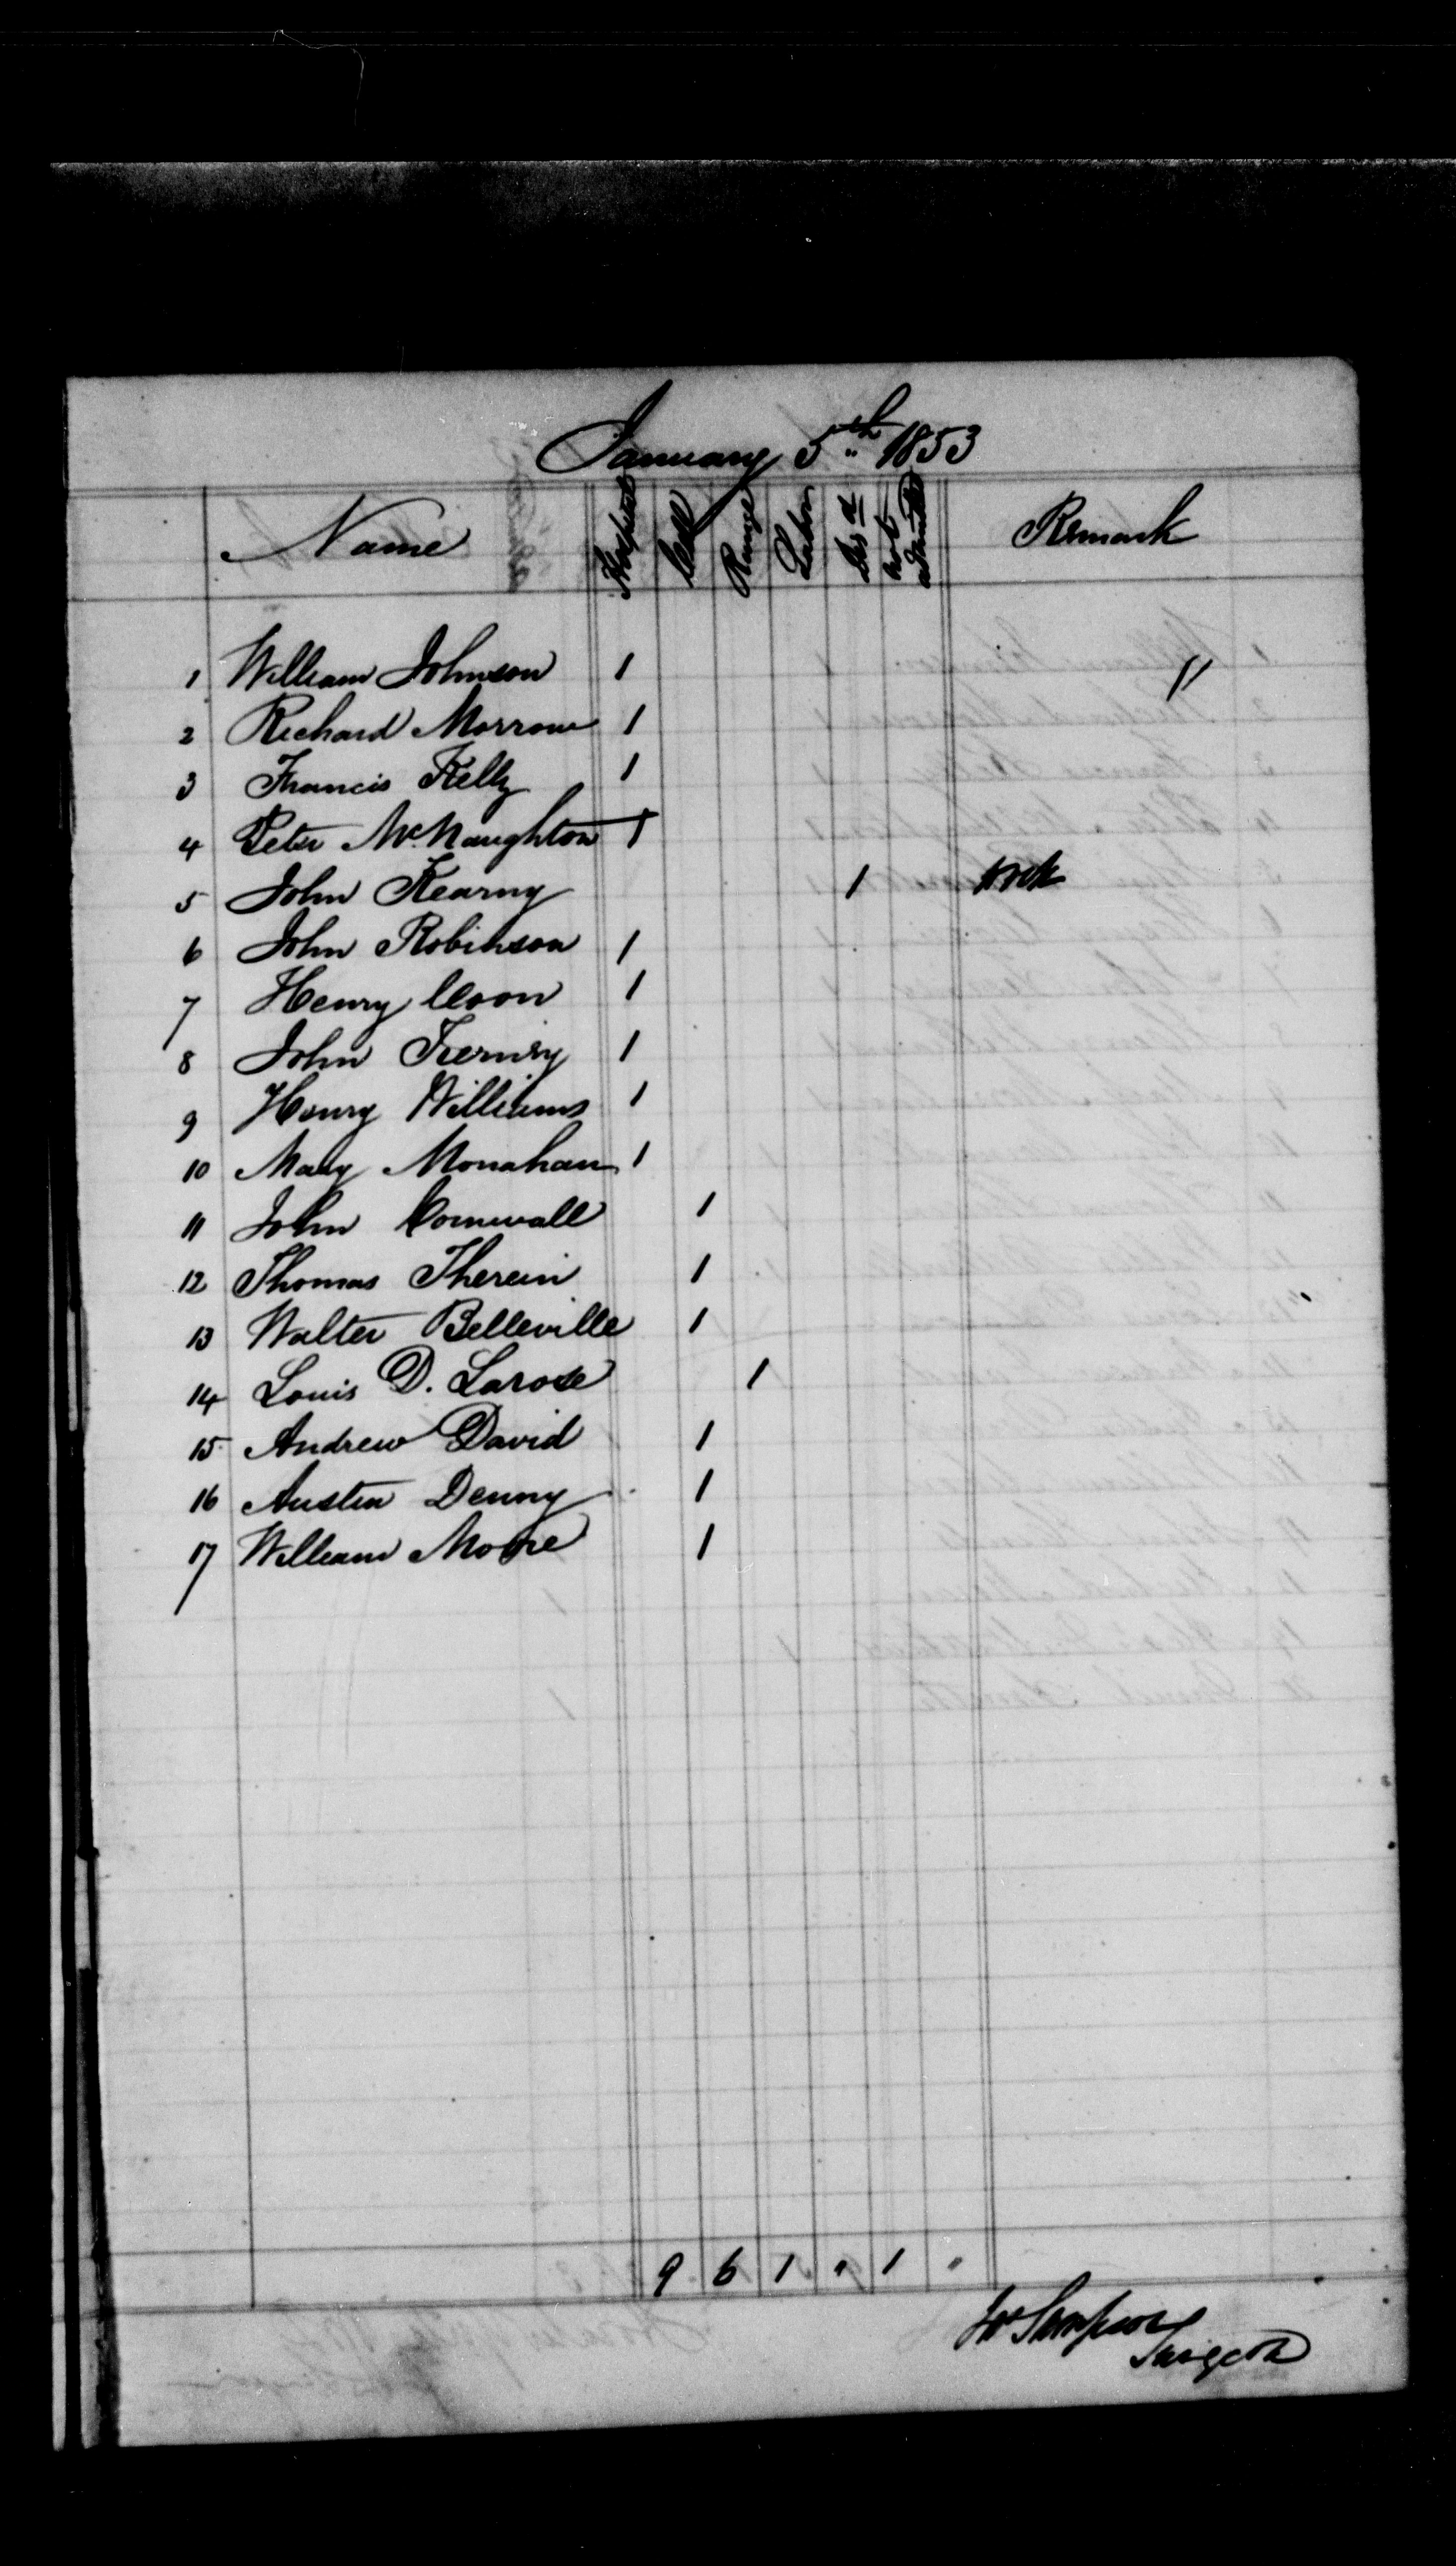 January 5th 1853
Name Hospital Cell Range Labor Dis d not admitted Remark
1 William Johnson 1 "
2 Richard Morrow 1
3 Francis Kelly 1
4 Peter McNaughton 1
5 John Kearny 1
6 John Robinson 1
7 Henry Coon 1
8 John Tierney 1
9 Henry Williams 1
10 Mary Monahan 1
11 John Cornwall 1
12 Thomas Therein 1
13 Walter Belleville 1
14 Louis D. Larose 1
15 Andrew David 1
16 Austin Denny 1
17 William Moore 1
9 6 1 " 1 "
Js Sampson
Surgeon